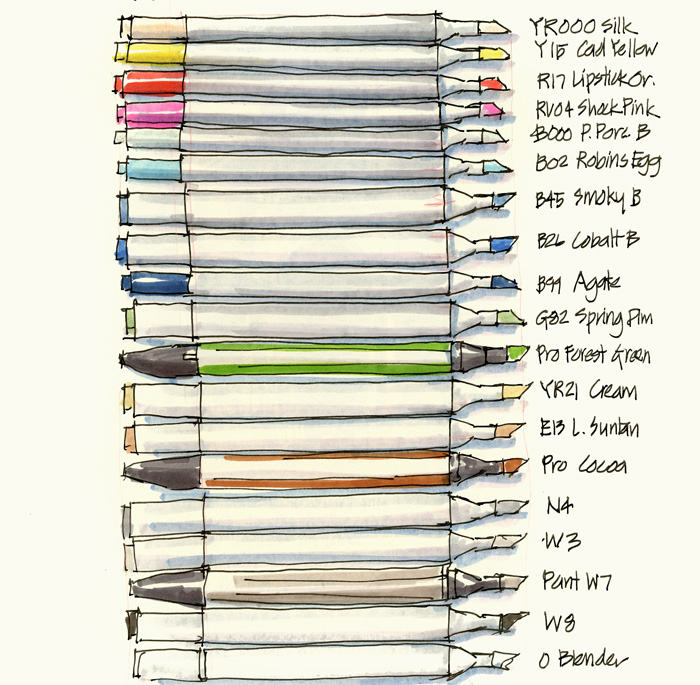 YR000 Silk
Y15 Cad Yellow
R17 Lipstick Or.
RV04 Shock Pink
B000 P. Porc B
B02 Robins Egg
B45 Smoky B
B26 Cobalt B
B99 Agate
G82 Spring Dim
Pro Forest Green
YR21 Cream
E13 L. Suntan
Pro Cocoa
N4
W3
Pant W7
W8
0 Blender